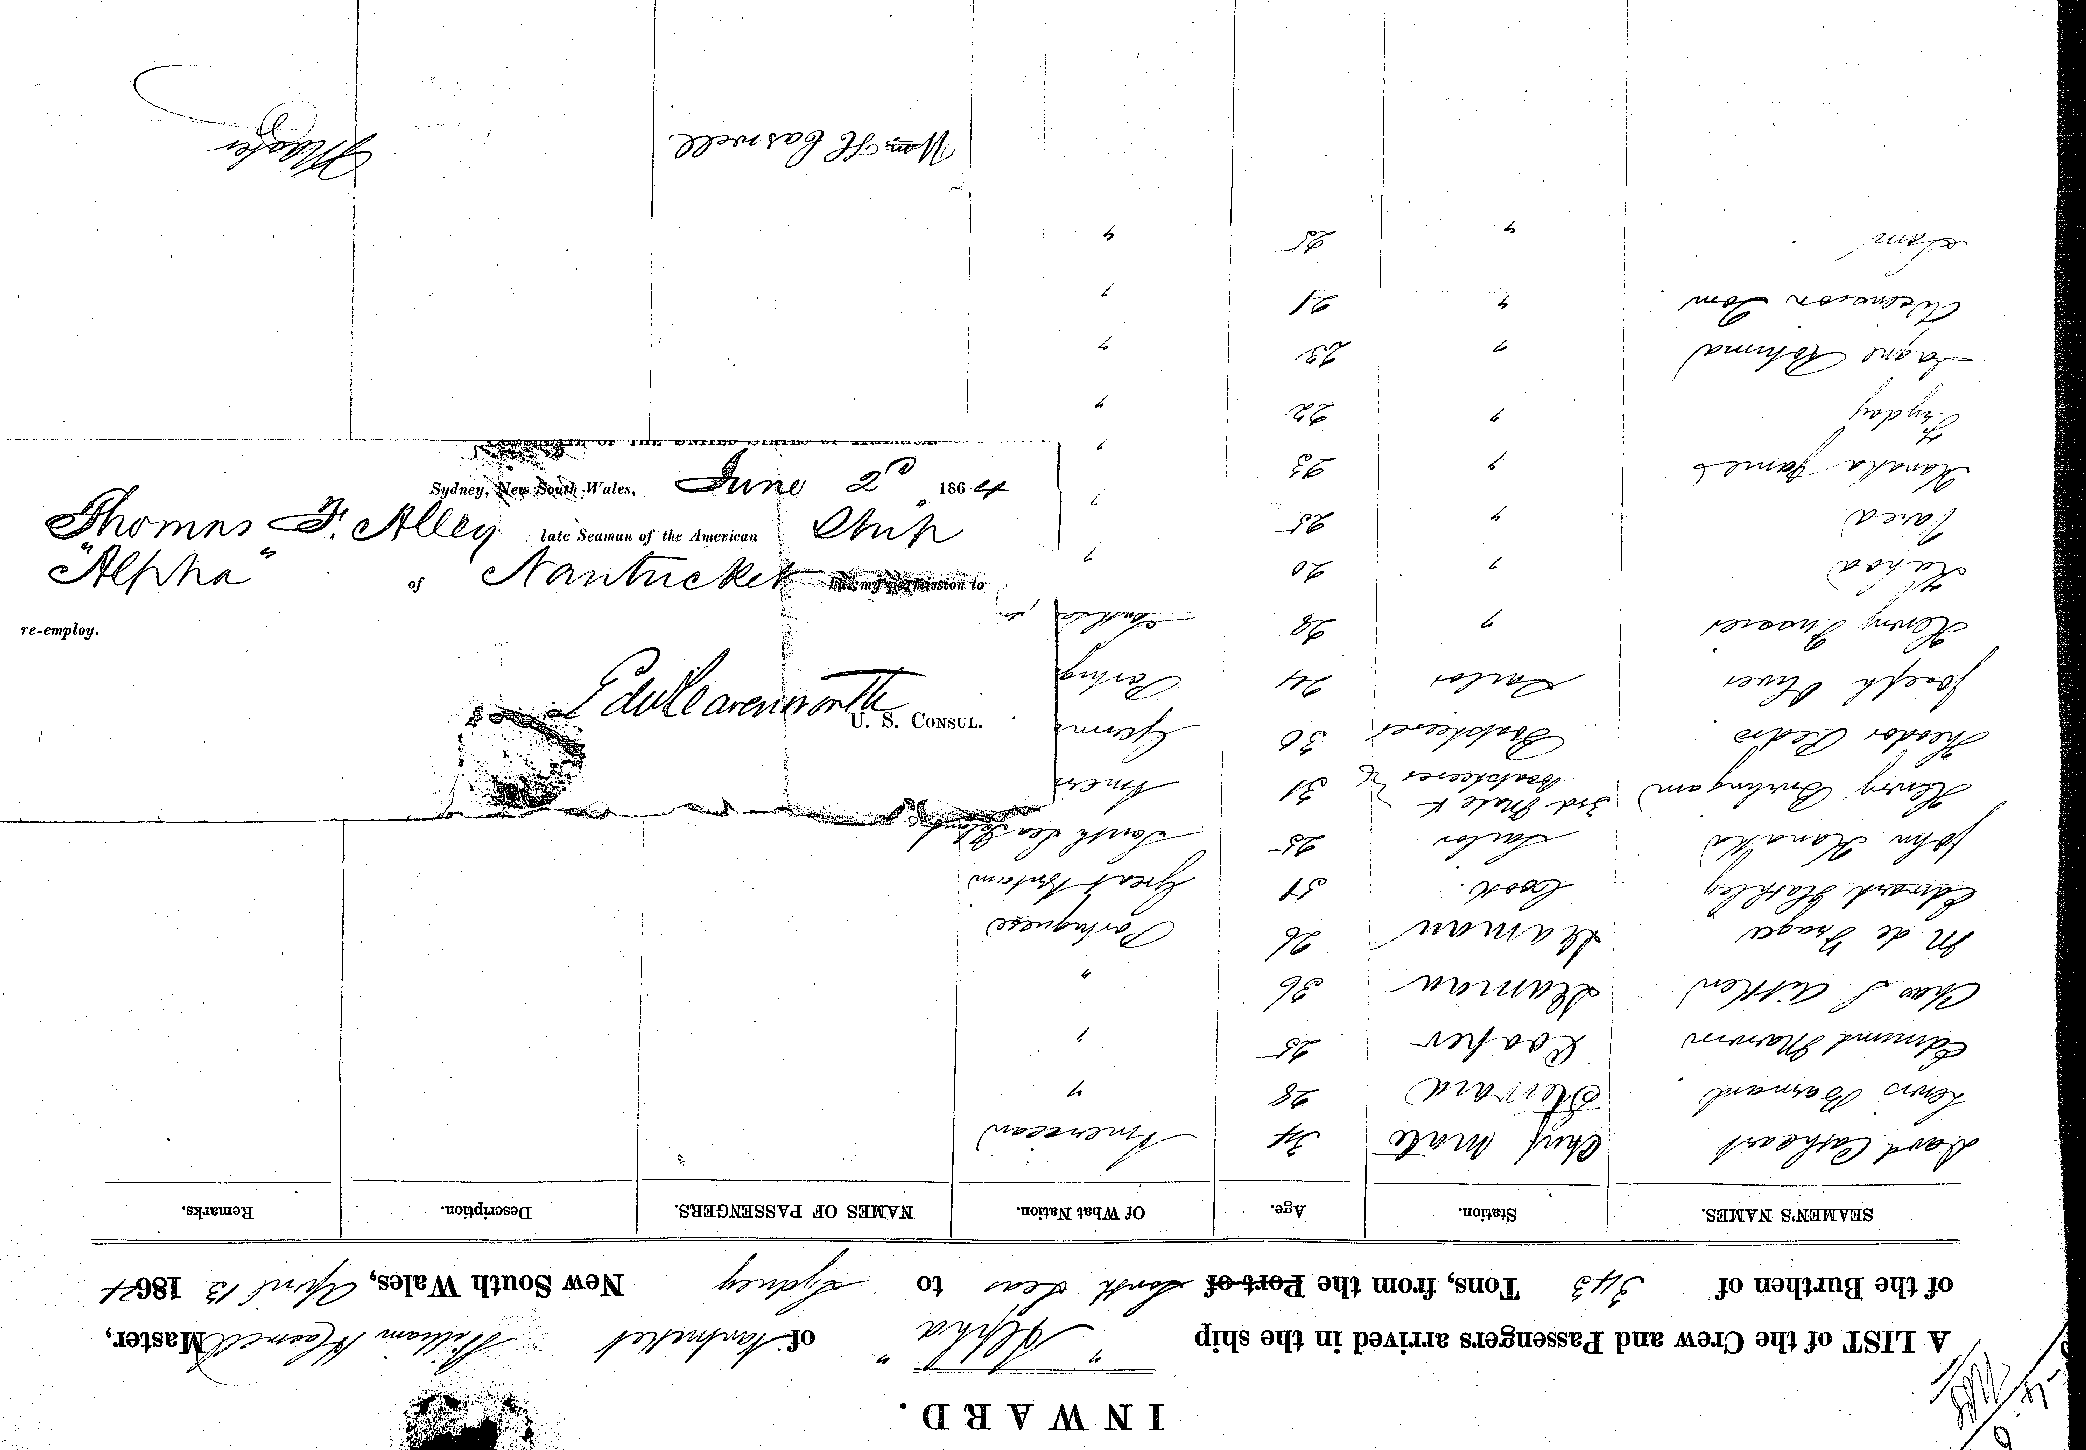 INWARD.
A LIST of the Crew and Passengers arrived in the ship "Alpha" of Nantucket William H Caswell Master,
of the Burthen of 343 Tons, from the Port of South Seas to Sydney New South Wales, April 13 1864
SEAMEN'S NAMES. Station. Age. Of What Nation. NAMES OF PASSENGERS. Description. Remarks.
Davd Cathcart Chief Mate 34 American
Lewis Barnard Steward 28 "
Edmund Marvin Cooper 25 "
Chas S Aitken Seaman 36 "
M de Fraga Seaman 26 Portuguese
Edward Cook 31 Great Britain
John Kanaka Sailor 25 South Sea Islands
Henry Burlingam 3rd Mate & Boatsteerer 31 Ameri
Theodor Pedro Boatsteerer 30 Germ
Joseph Oliver Sailor 24 Portug
Henry " 28 South Sea
Kahoa " 20 "
Parea " 25 "
Kanaka James " 23 "
Fryday " 22 "
Rotuma " 23 "
Tom " 21 "
Sam " 25 "
Wm H Caswell
Master
CONSULATE OF THE UNITED STATES OF AMERICA
Sydney, New South Wales, June 2d 1864
Thomas F. Alley late Seaman of the American Ship
"Alpha" of Nantucket has my permission to
re-employ.
Edw Leavenworth
U. S. CONSUL.